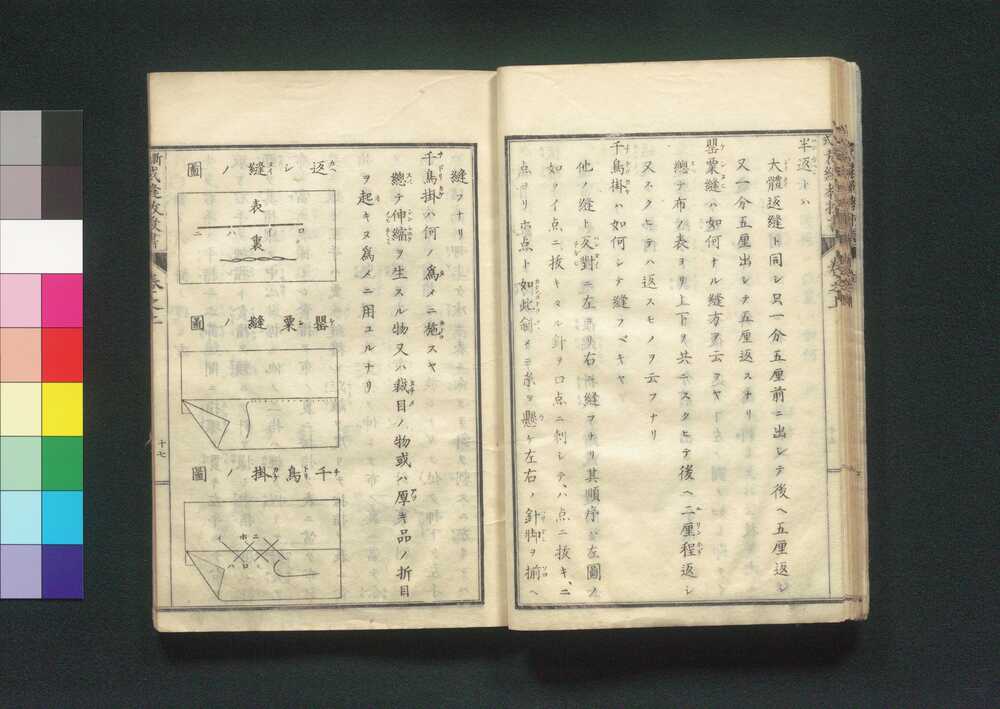 半返トハ
大體返縫ト同シ只一分五厘前ニ出シテ後ヘ五厘返シ
又一分五厘出シテ五厘返スナリ
罌粟縫ハ如何ナル縫方ヲ云フヤ
總テ布ノ表ヨリ上下ヲ共ニスクヒテ後ヘ二厘程返シ
又スクヒテハ返スモノヲ云フナリ
千鳥掛ハ如何シテ縫フベキヤ
他ノ縫ト反對ニ左ヨリ右ヘ縫フナリ其順序ハ左圖ノ
如クイ点ニ抜キタル針ヲロ点ニ刺シテ、ハ点ニ抜キ、ニ
点ヨリホ点ト如此 糸ヲ懸ケ左右ノ針脚ヲ揃ヘ
縫フナリ
千鳥掛ハ何ノ爲メニ施スヤ
總テ伸縮ヲ生スル物又ハ裁目ノ物或ハ厚キ品ノ折目
ヲ起キヌ爲メニ用ユルナリ
返シ縫ノ圖
表
裏
ロ イ ハ ニ
罌粟縫ノ圖
千鳥掛ノ圖
ニ ホ イ
ロ ハ
卷之二
十七